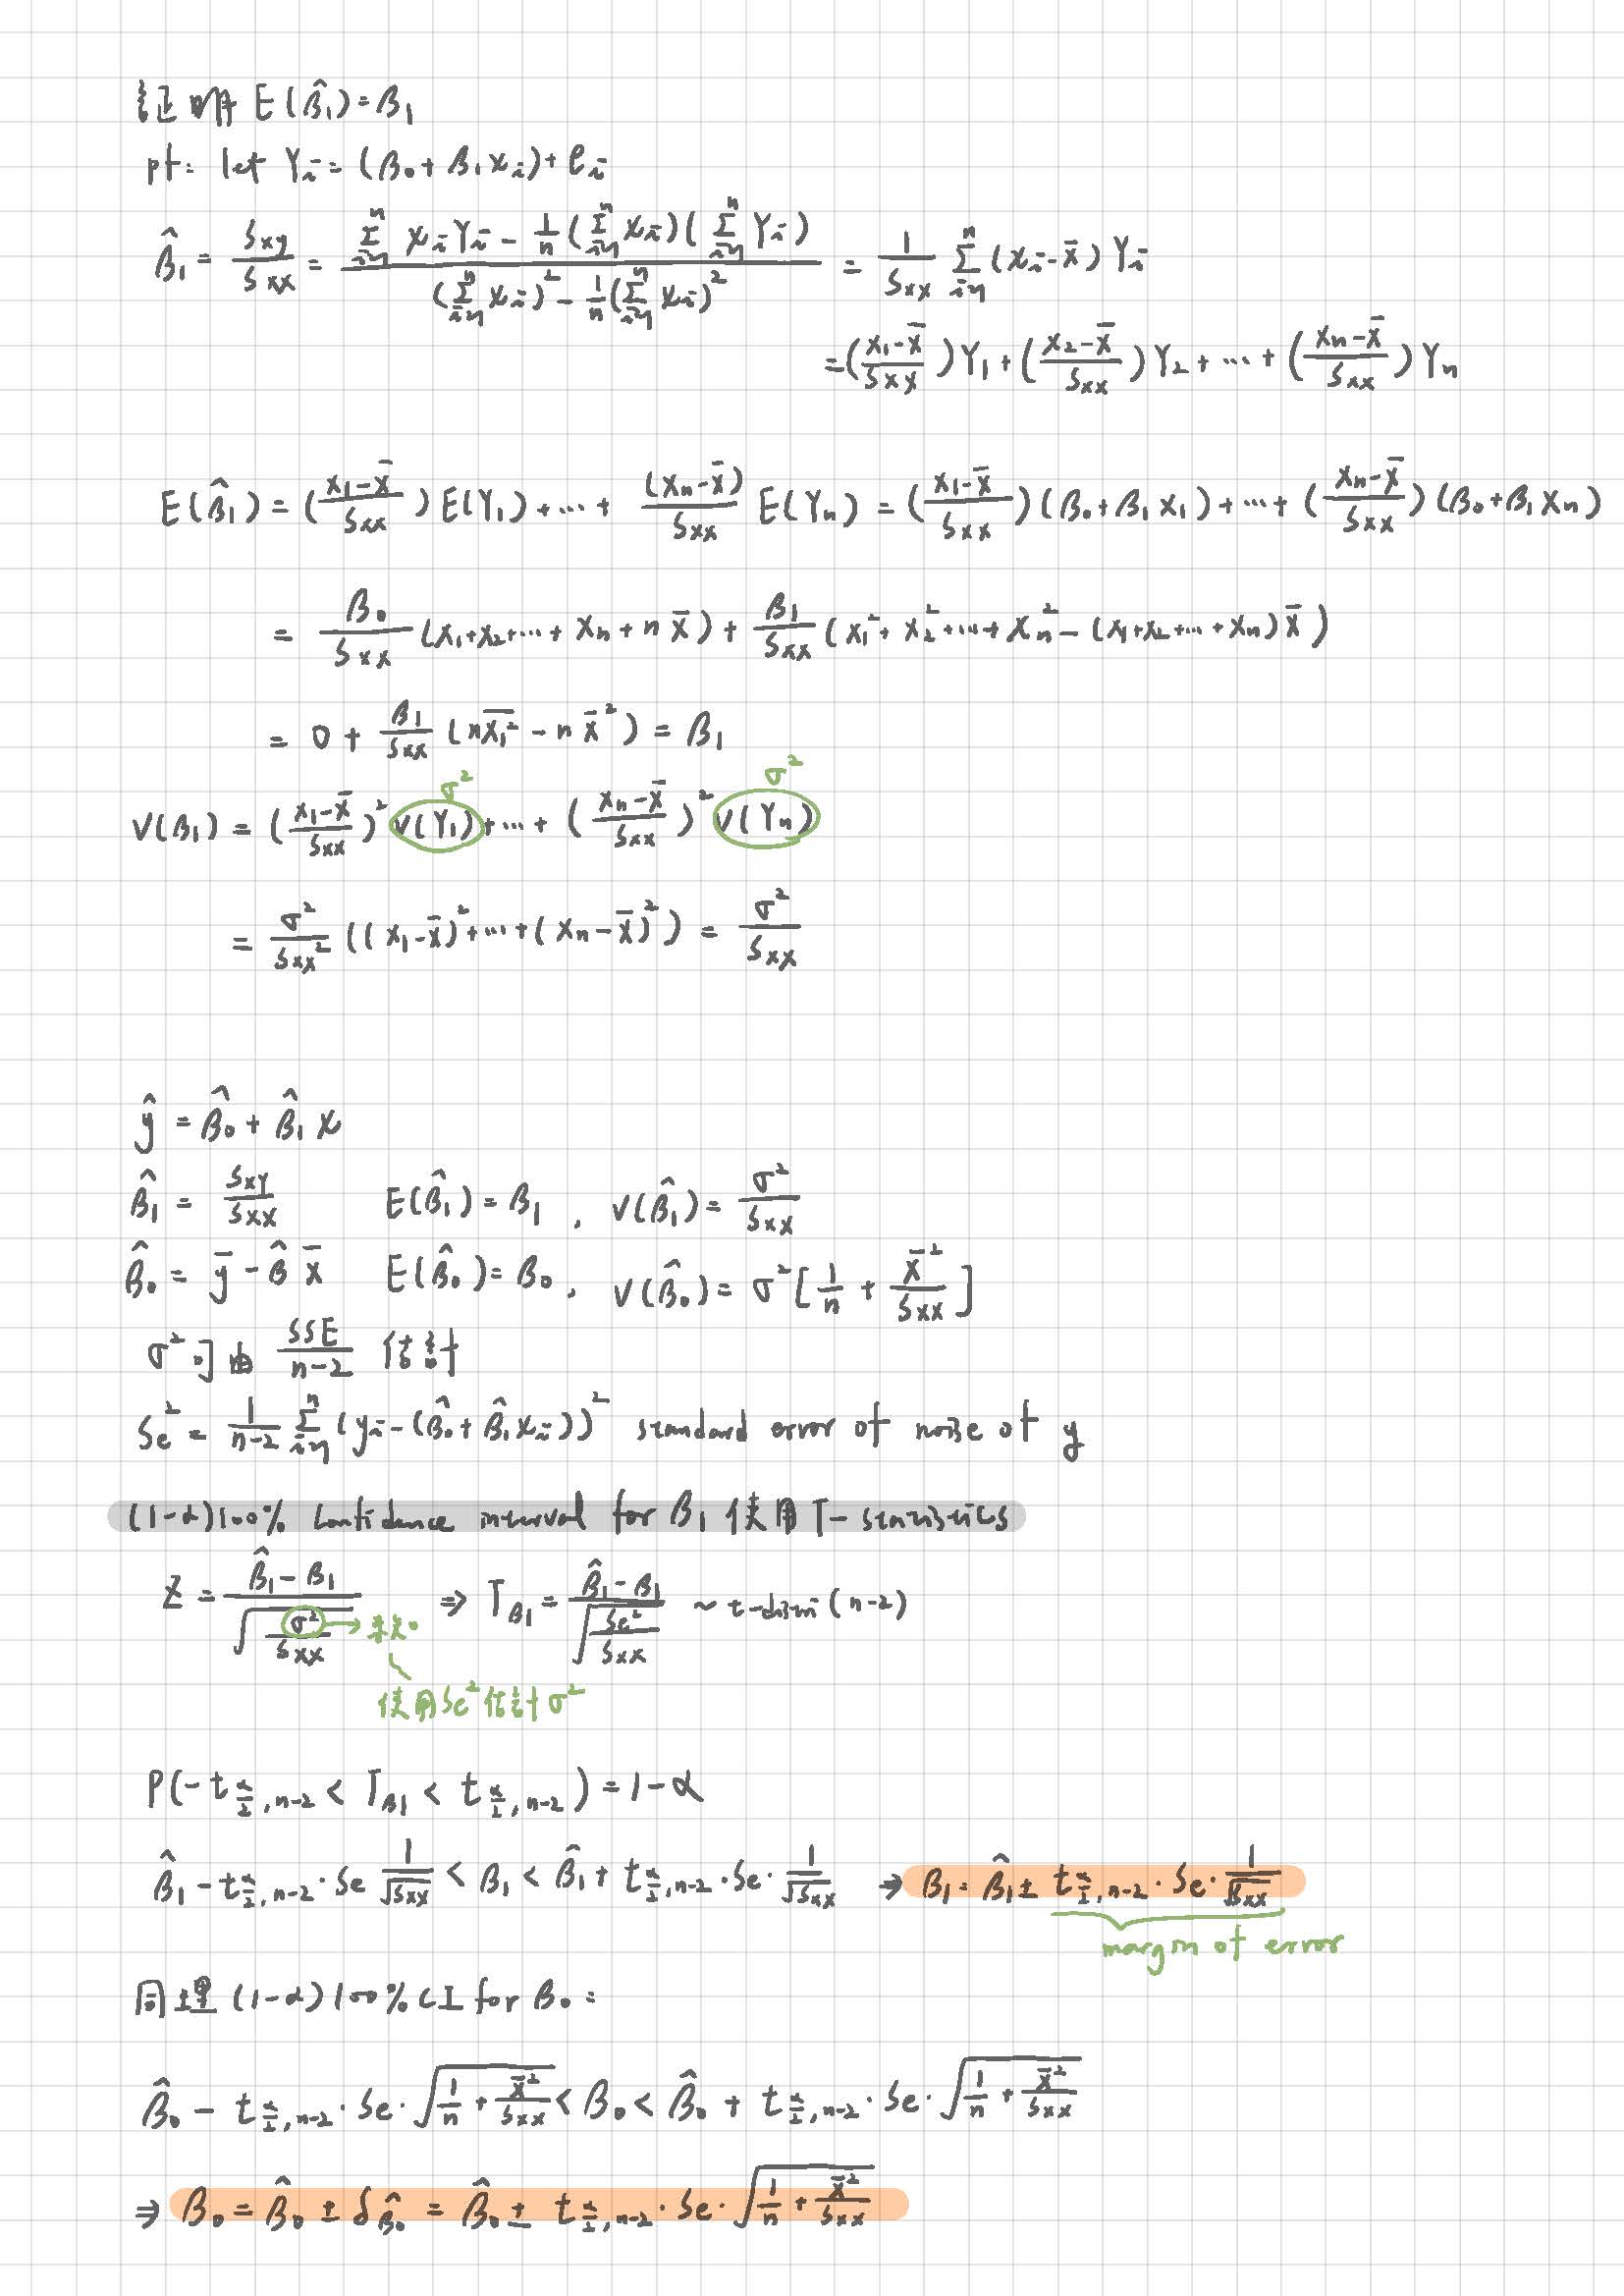 証明 E(β̂₁)=β₁
pf: let Yᵢ=(β₀+β₁xᵢ)+eᵢ
β̂₁ = Sxy/Sxx = (Σᵢ₌₁ⁿ xᵢYᵢ - 1/n (Σᵢ₌₁ⁿ xᵢ)(Σᵢ₌₁ⁿ Yᵢ)) / ((Σᵢ₌₁ⁿ xᵢ)² - 1/n (Σᵢ₌₁ⁿ xᵢ)²) = 1/Sxx Σᵢ₌₁ⁿ (xᵢ-x̄)Yᵢ
=((x₁-x̄)/Sxx)Y₁+((x₂-x̄)/Sxx)Y₂+⋯+((xₙ-x̄)/Sxx)Yₙ
E(β̂₁)=((x₁-x̄)/Sxx)E(Y₁)+⋯+ (xₙ-x̄)/Sxx E(Yₙ) = ((x₁-x̄)/Sxx)(β₀+β₁x₁)+⋯+((xₙ-x̄)/Sxx)(β₀+β₁xₙ)
= β₀/Sxx (x₁+x₂+⋯+xₙ+n x̄) + β₁/Sxx (x₁²+x₂²+⋯+xₙ²-(x₁+x₂+⋯+xₙ)x̄)
= 0 + β₁/Sxx (n x̄₁² - n x̄²) = β₁
σ² σ²
V(β₁) = ((x₁-x̄)/Sxx)² V(Y₁)+⋯+((xₙ-x̄)/Sxx)² V(Yₙ)
= σ²/Sxx² ((x₁-x̄)²+⋯+(xₙ-x̄)²) = σ²/Sxx
ŷ = β̂₀+β̂₁x
β̂₁ = Sxy/Sxx E(β̂₁)=β₁, V(β̂₁)= σ²/Sxx
β̂₀ = ȳ-β̂ x̄ E(β̂₀)=β₀, V(β̂₀)= σ²[1/n + x̄²/Sxx]
σ²可由 SSE/(n-2) 估計
Se² = 1/(n-2) Σᵢ₌₁ⁿ (yᵢ-(β̂₀+β̂₁xᵢ))² standard error of noise of y
(1-α)100% Confidence interval for β₁ 使用T-statistics
Z = (β̂₁-β₁)/√(σ²/Sxx) → 未知 ⇒ T_β₁ = (β̂₁-β₁)/√(Se²/Sxx) ~ t-distri(n-2)
使用Se²估計σ²
P(-t_{α/2,n-2} < T_β₁ < t_{α/2,n-2})=1-α
β̂₁-t_{α/2,n-2}·Se 1/√Sxx < β₁ < β̂₁+t_{α/2,n-2}·Se·1/√Sxx ⇒ β₁=β̂₁±t_{α/2,n-2}·Se·1/√Sxx
margin of error
同理(1-α)100%CI for β₀:
β̂₀-t_{α/2,n-2}·Se·√(1/n+x̄²/Sxx) < β₀ < β̂₀+t_{α/2,n-2}·Se·√(1/n+x̄²/Sxx)
⇒ β₀=β̂₀±δ_β̂₀=β̂₀±t_{α/2,n-2}·Se·√(1/n+x̄²/Sxx)